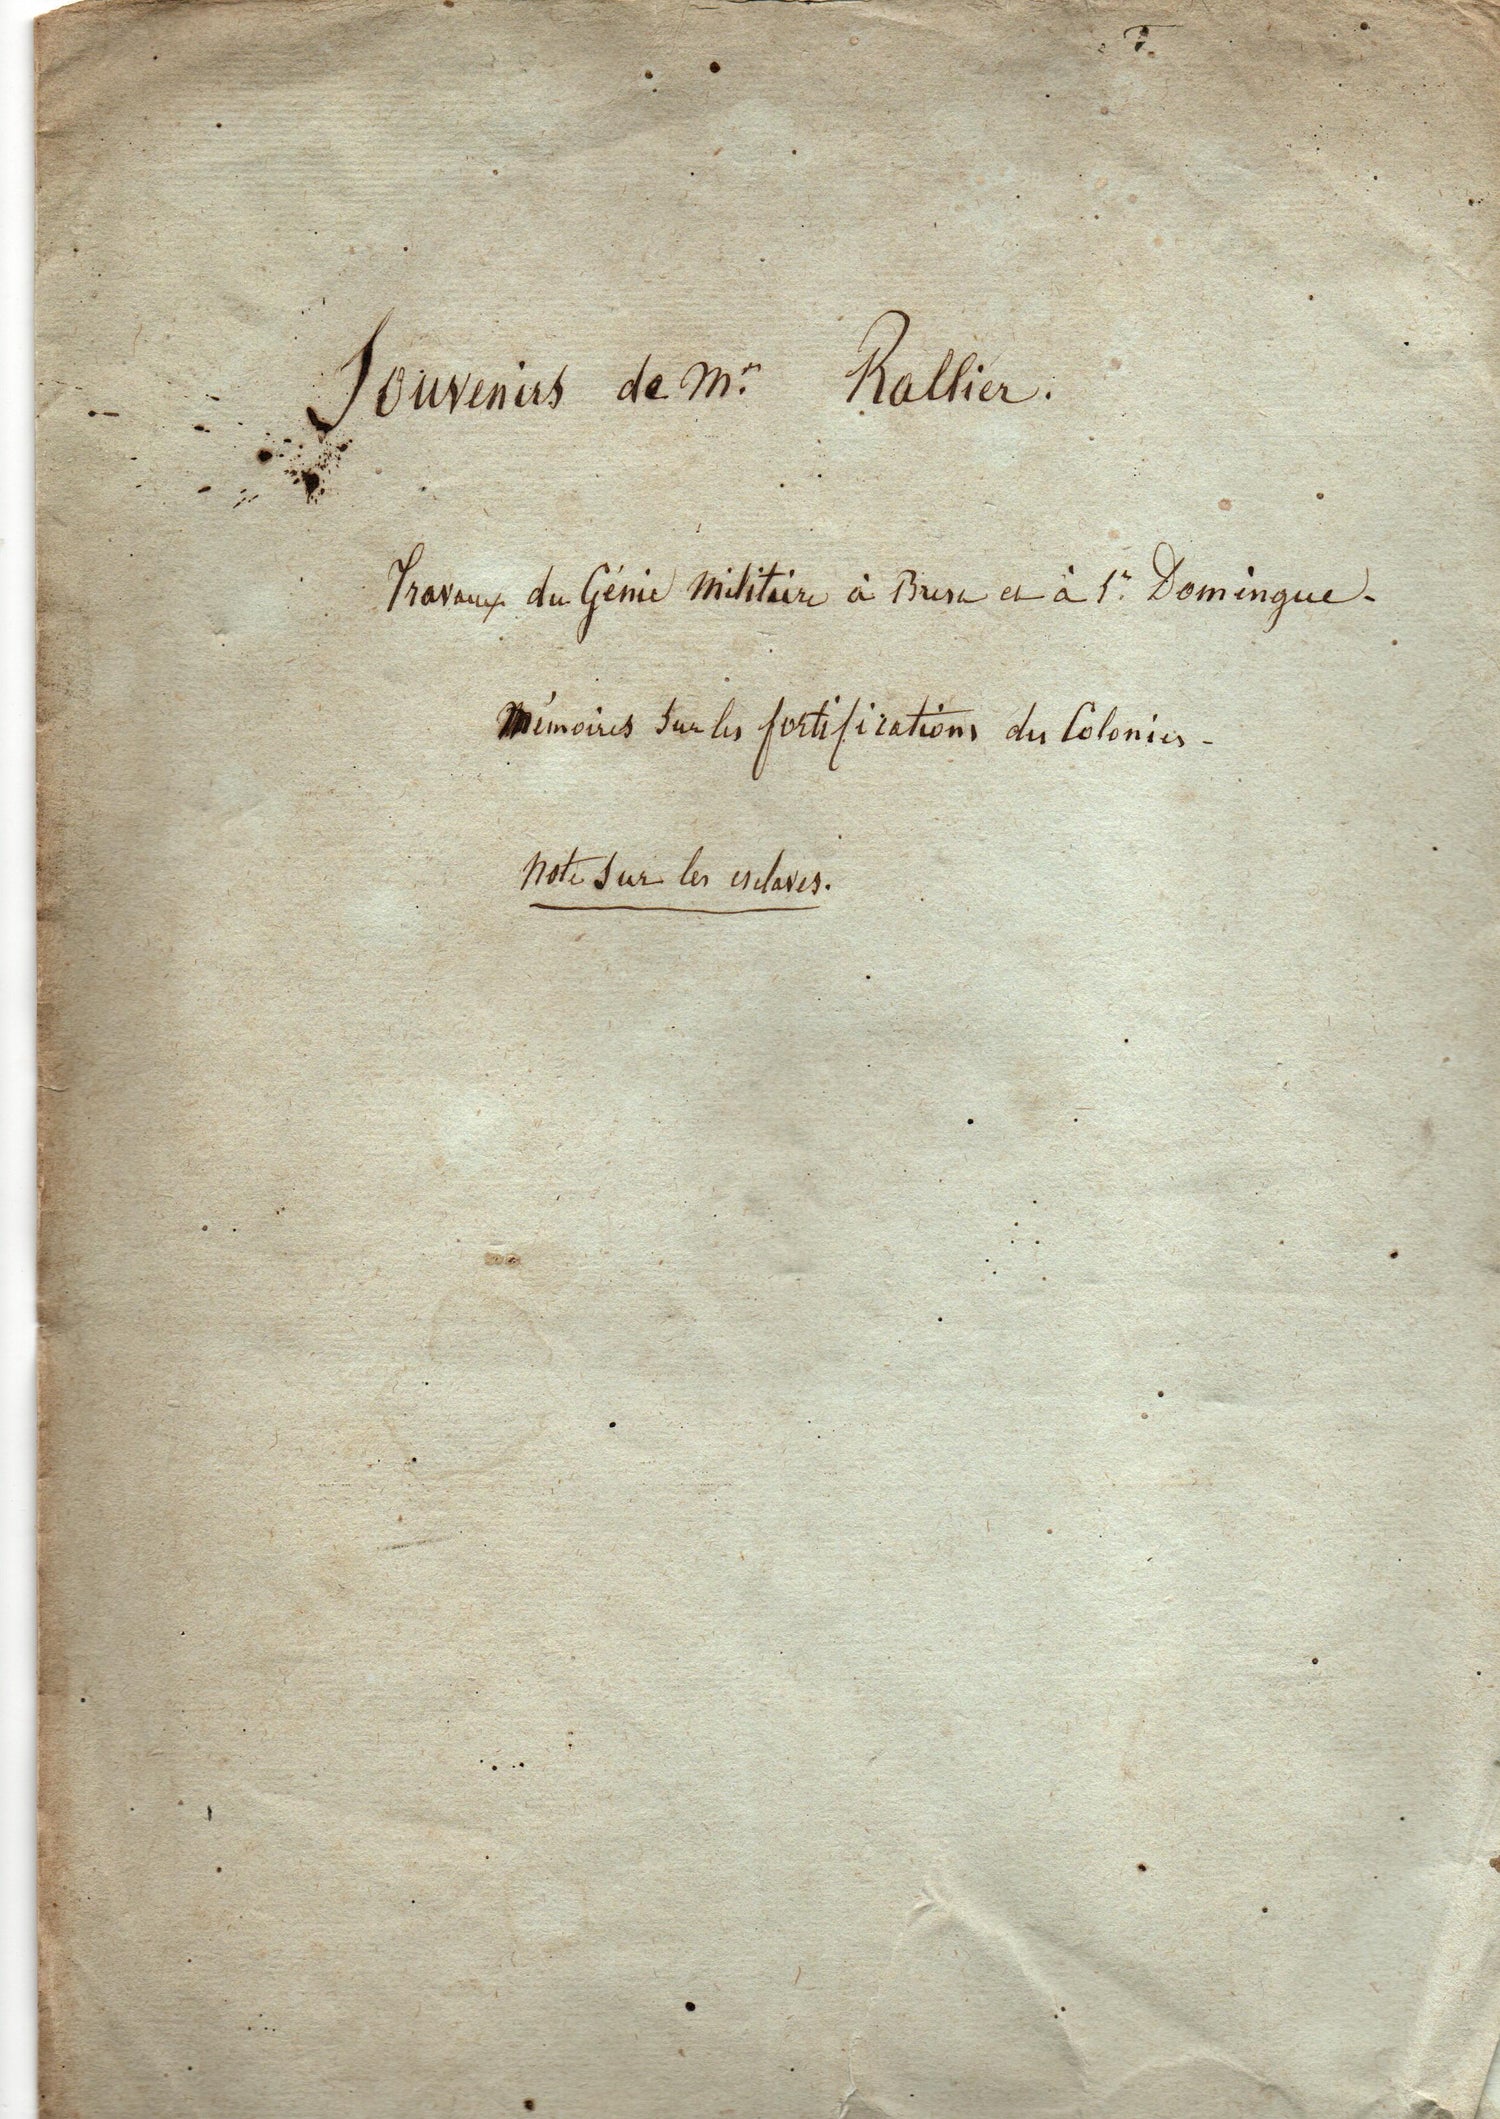 Souvenirs de Mr. Rallier.
Travaux du Génie Militaire à Brest et à St. Domingue -
Mémoires sur les fortifications des Colonies -
Note sur les esclaves.